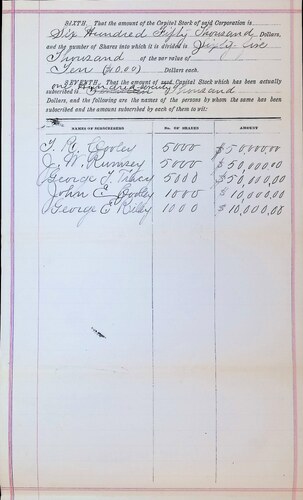 SIXTH. That the amount of the Capital Stock of said Corporation is
Six Hundred Fifty Thousand Dollars,
and the number of Shares into which it is divided is Sixty five
Thousand of the par value of
Ten ($10.00) Dollars each.
SEVENTH. That the amount of said Capital Stock which has been actually
one Hundred seventy
subscribed is Thousand
Dollars, and the following are the names of the persons by whom the same has been
subscribed and the amount subscribed by each of them to wit:
NAMES OF SUBSCRIBERS No. OF SHARES AMOUNT
T. R. Cooley 5000 $50000.00
J. W. Rumsey 5000 $50,000.00
George T. Tracy 5000 $50,000.00
John E. 1000 $10,000.00
George E Riley 1000 $10,000.00